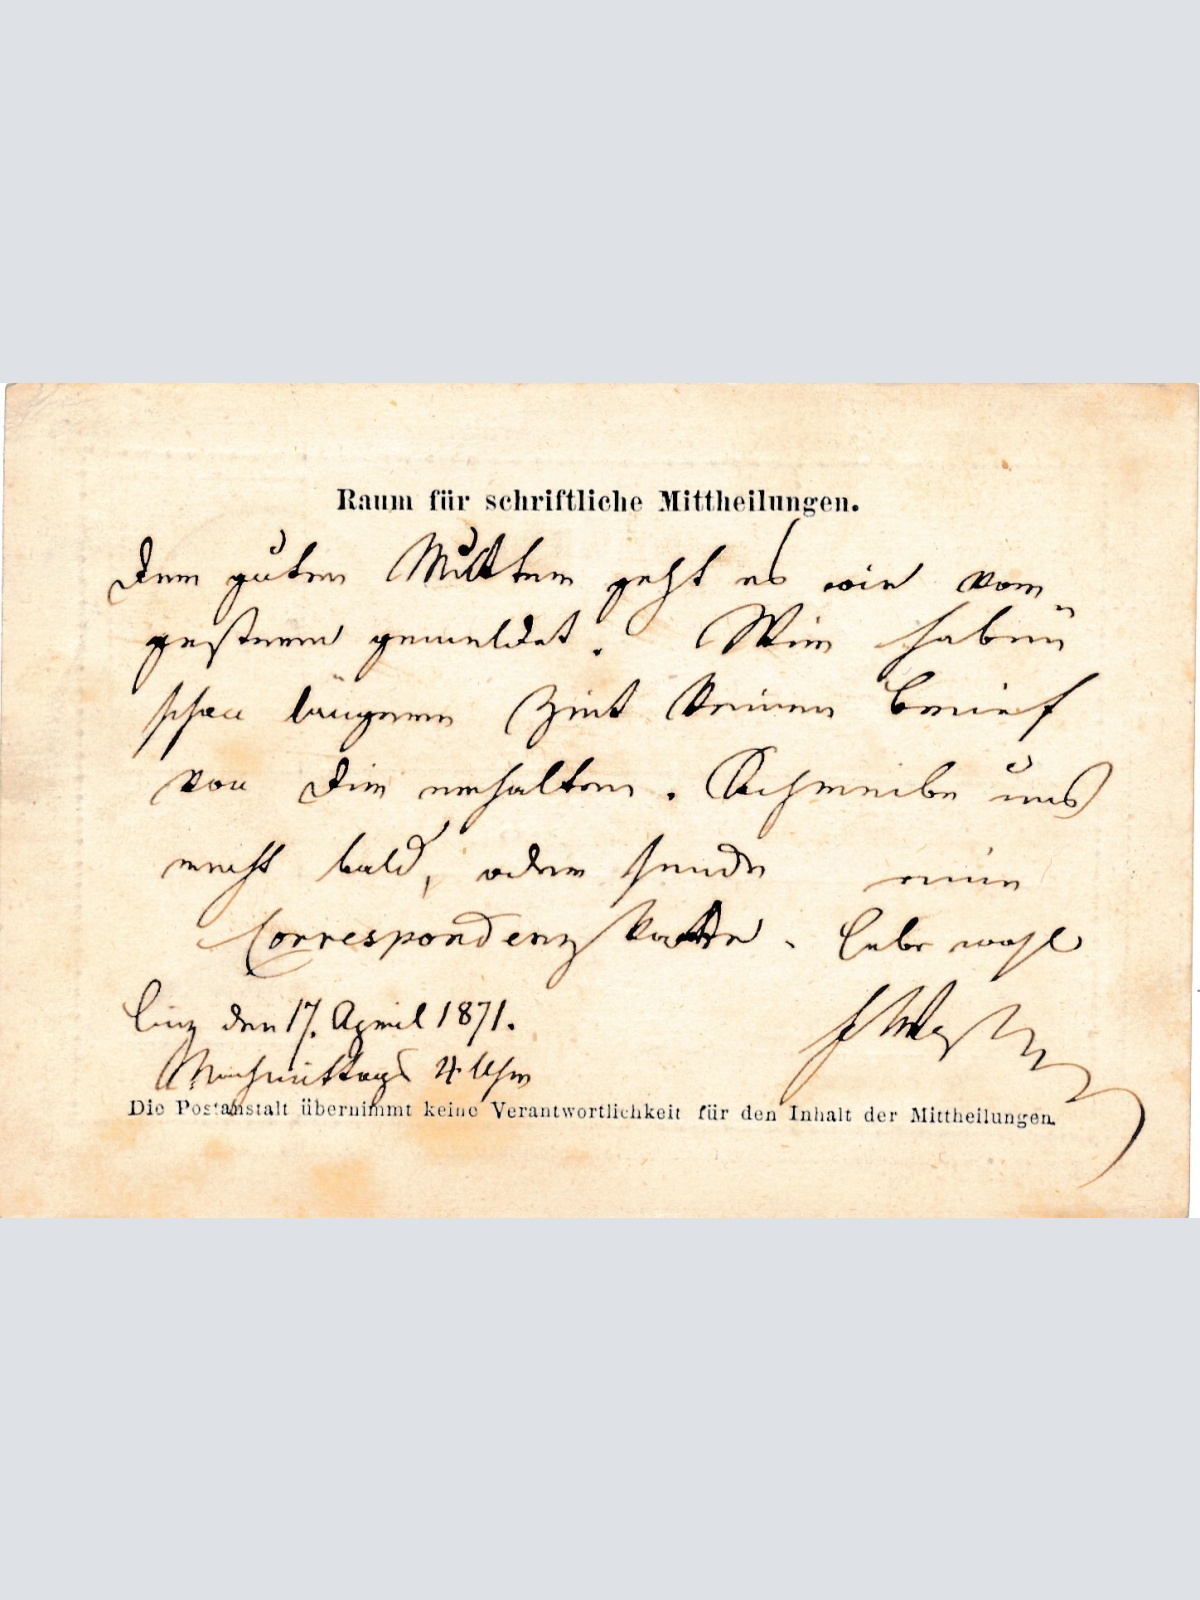 Raum für schriftliche Mittheilungen.
Der guten Mutter geht es wie vor
gestern gemeldet. Wir haben
schon längere Zeit keinen Brief
von Dir erhalten. Schreibe uns
recht bald, oder sende eine
Correspondenz Karte. Lebe wohl
Linz den 17. April 1871.
Nachmittags 4 Uhr
Die Postanstalt übernimmt keine Verantwortlichkeit für den Inhalt der Mittheilungen.